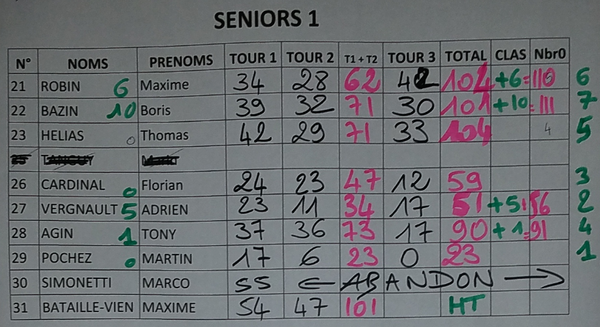 SENIORS 1
N° NOMS PRENOMS TOUR 1 TOUR 2 T1 + T2 TOUR 3 TOTAL CLAS Nbr0
21 ROBIN 6 Maxime 34 28 62 42 104 +6 =110 6
22 BAZIN 10 Boris 39 32 71 30 101 +10 =111 7
23 HELIAS 0 Thomas 42 29 71 33 104 4 5
26 CARDINAL 0 Florian 24 23 47 12 59 3
27 VERGNAULT 5 ADRIEN 23 11 34 17 51 +5 =56 2
28 AGIN 1 TONY 37 36 73 17 90 +1 =91 4
29 POCHEZ 0 MARTIN 17 6 23 0 23 1
30 SIMONETTI MARCO 55 ← ABANDON →
31 BATAILLE-VIEN MAXIME 54 47 101 HT